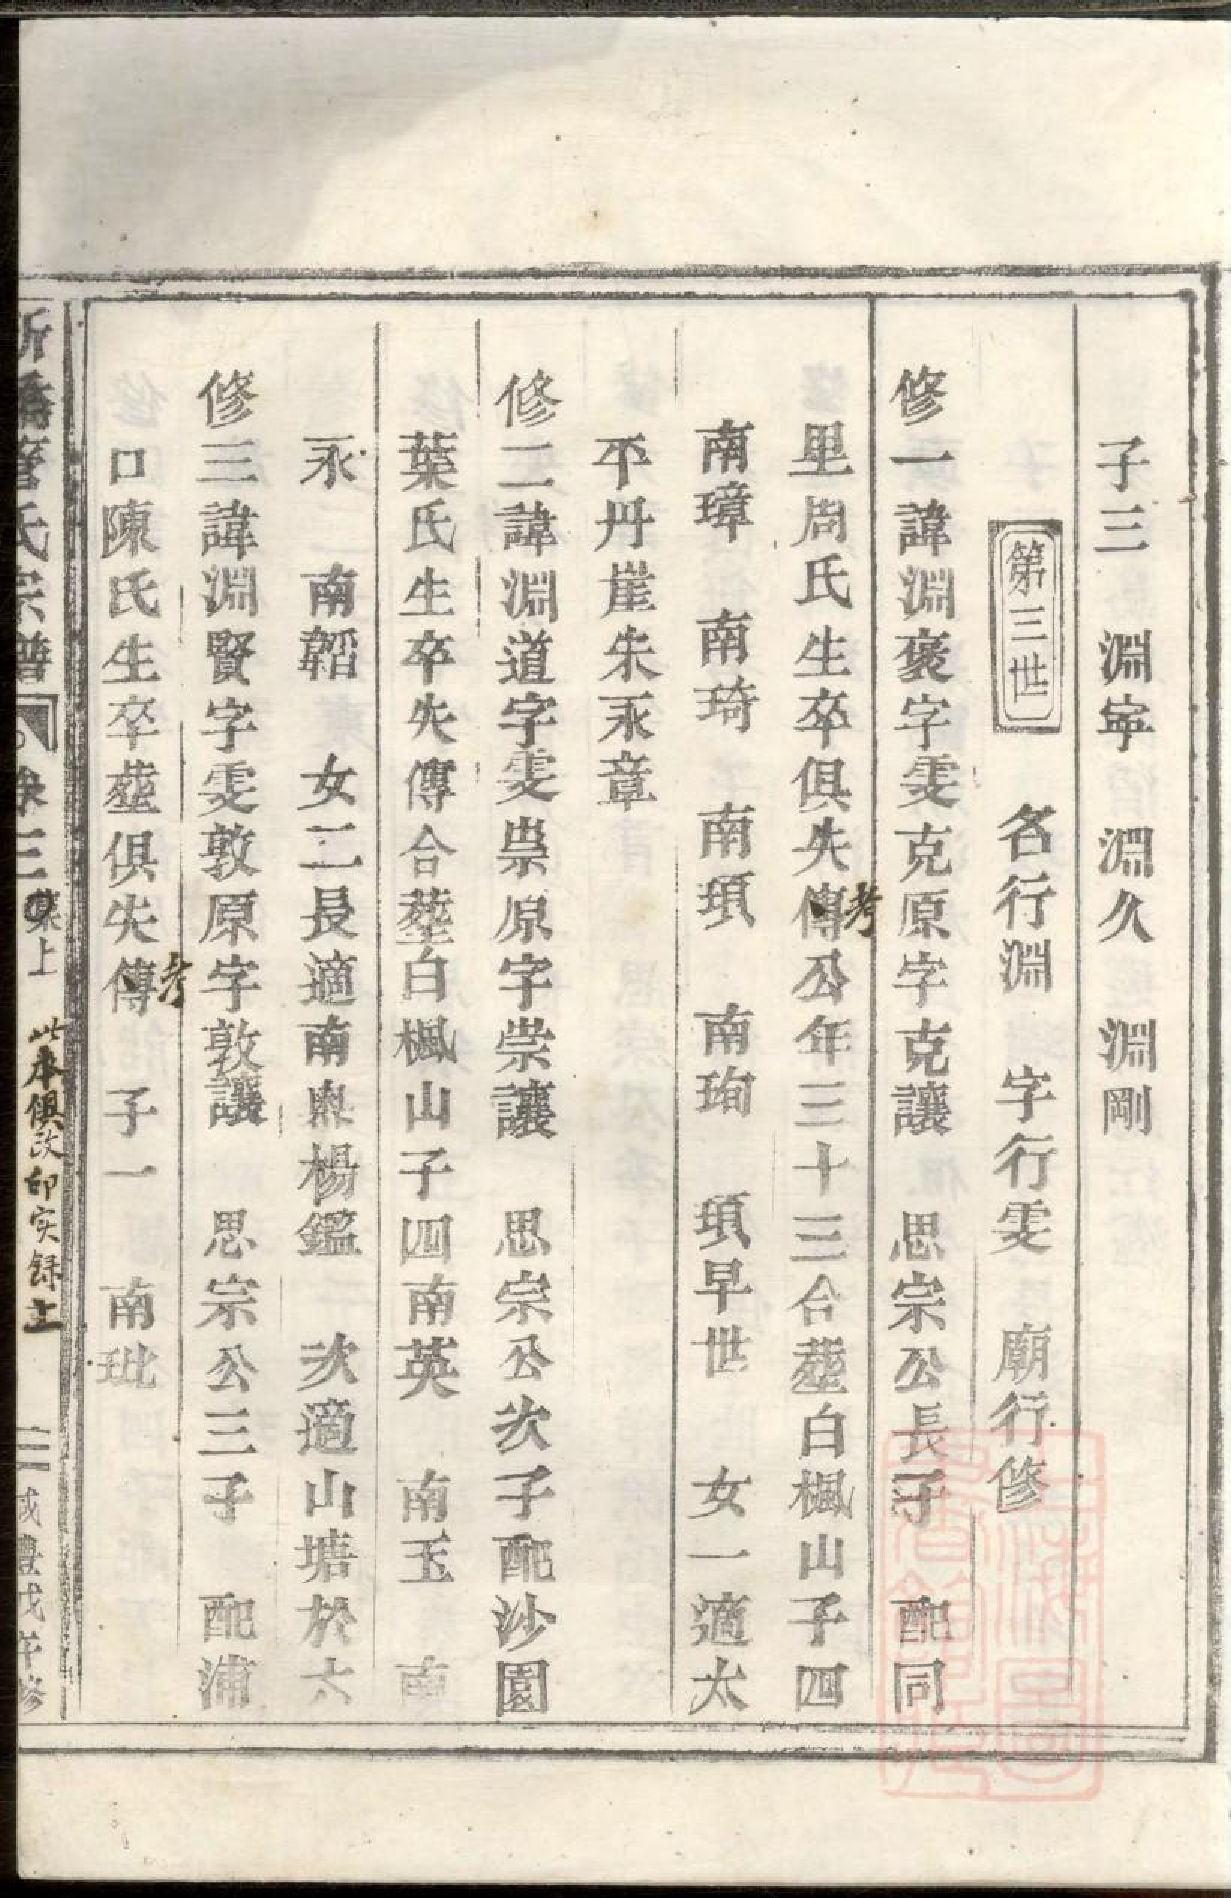 子三 淵寜 淵久 淵剛
第三世 名行淵 字行雯 廟行修
修一諱淵裦字雯克原字克讓 思宗公長子 配同
里周氏生卒俱失傳公年三十三合塟白楓山子四
考
南璋 南琦 南頊 南珣 頊早世 女一適太
平丹崖朱永章
修二諱淵道字雯祟原字崇讓 思宗公次子配沙園
葉氏生卒失傳合塟白楓山子四南英 南玉 南
永 南韜 女二長適南奧楊鑑 次適山塘於六
修三諱淵賢字雯敦原字敦讓 思宗公三子 配浦
口陳氏生卒塟俱失傳 子一 南玭
考
氏宗譜 卷三 集上 二 咸豐戊午修
此本俱改印实録上